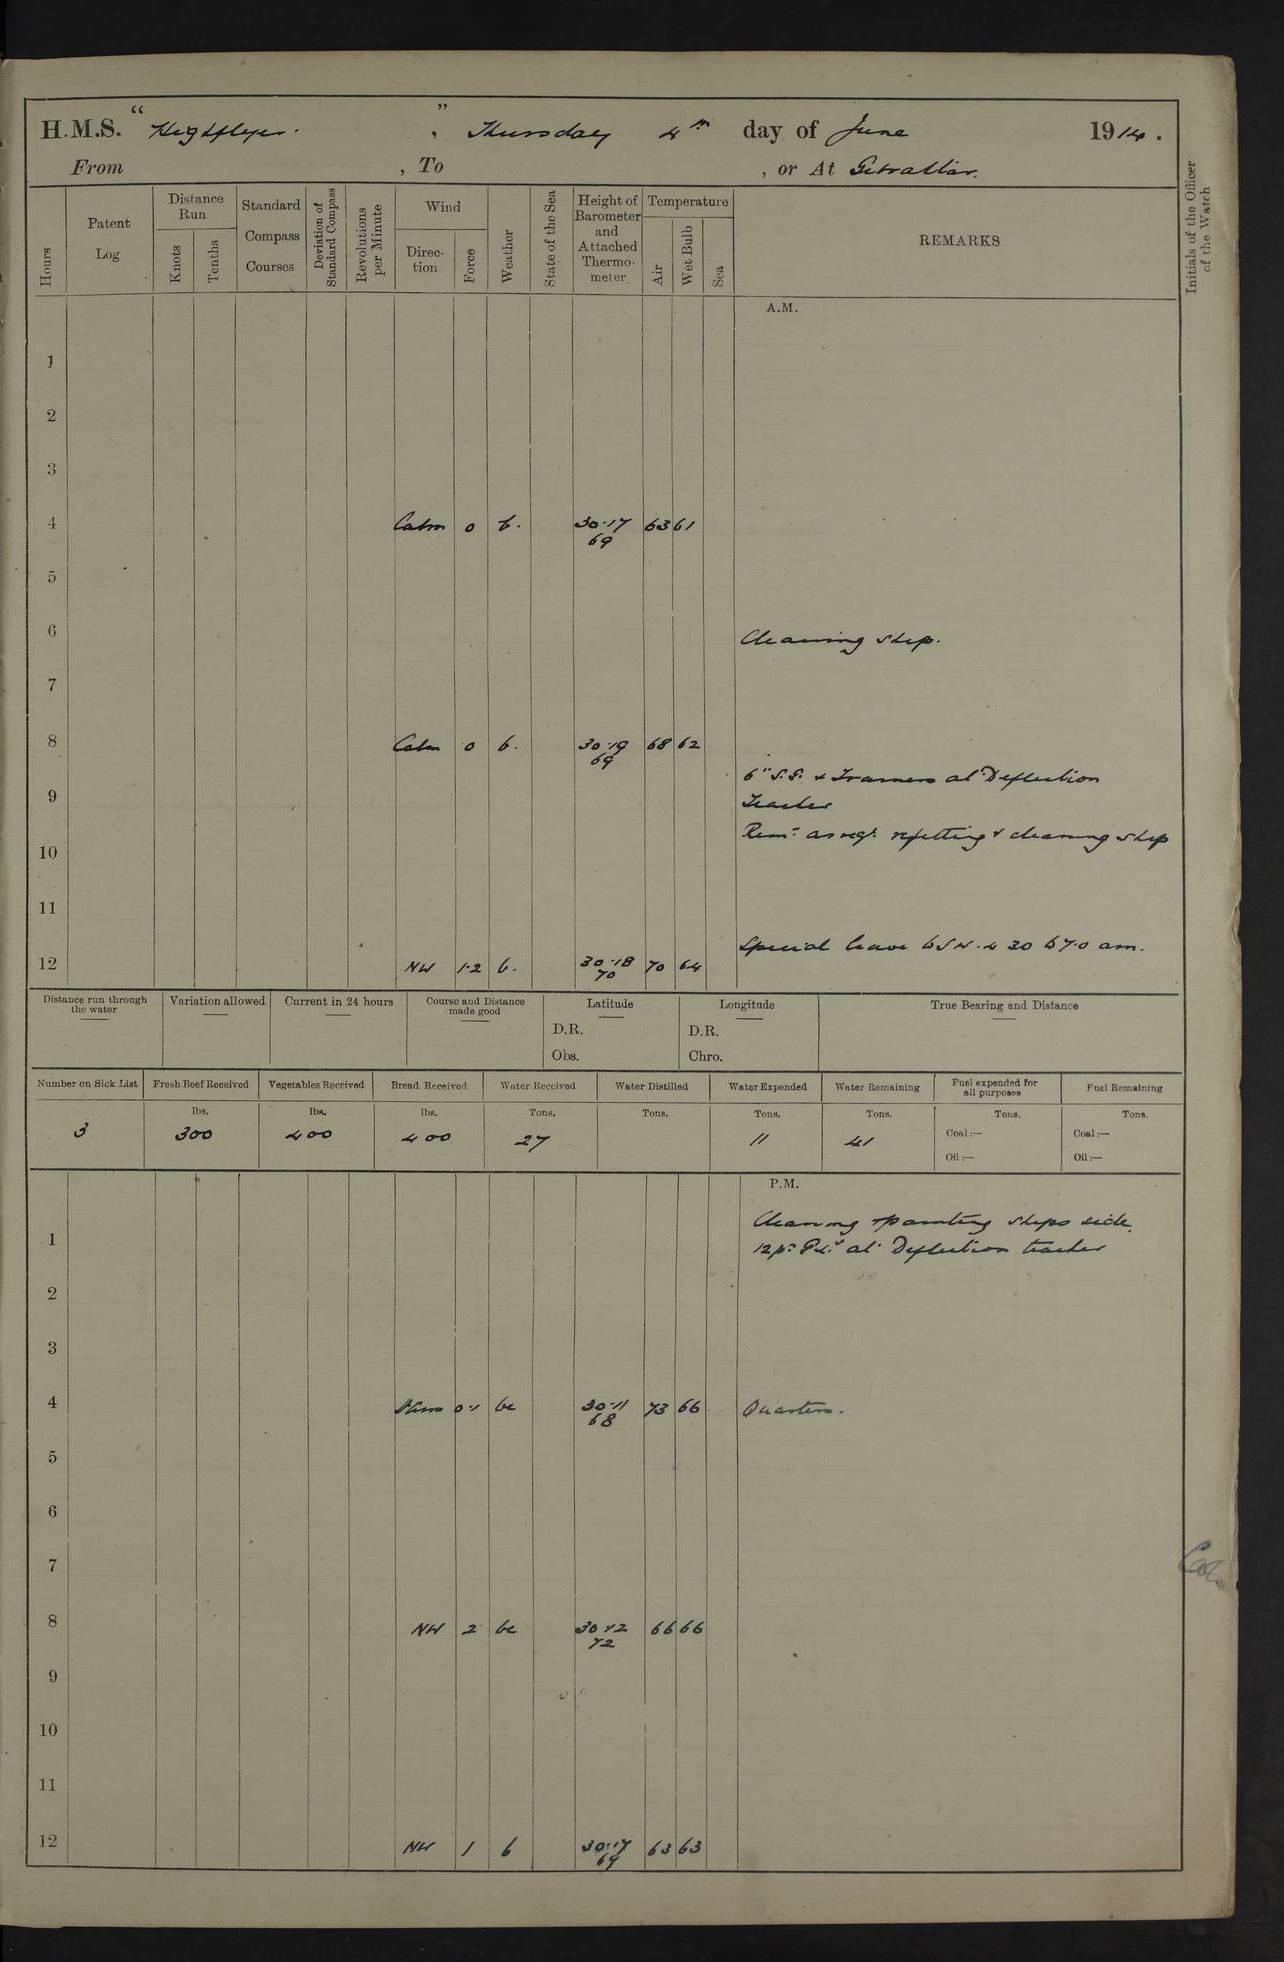 H.M.S. “ Highflyer. ” , Thursday 4th day of June 1914.
From , To , or At Gibraltar.
Hours
Patent Log
Distance Run
Knots
Tenths
Standard Compass Courses
Deviation of Standard Compass
Revolutions per Minute
Wind
Direction
Force
Weather
State of the Sea
Height of Barometer and Attached Thermometer
Temperature
Air
Wet Bulb
Sea
REMARKS
Initials of the Officer of the Watch
A.M.
1
2
3
4 Calm 0 b. 30.17 63 61
69
5
6 Cleaning ship.
7
8 Calm 0 b. 30.19 68 62
69
6" S.P. & Trainers at Deflection
9 Teacher
Remr as reqd. refitting & cleaning ship
10
11
Special leave to SW. 4 30 to 7.0 am.
12 NW 1.2 b. 30.18 70 64
70
Distance run through the water
Variation allowed
Current in 24 hours
Course and Distance made good
Latitude
D.R.
Obs.
Longitude
D.R.
Chro.
True Bearing and Distance
Number on Sick List
Fresh Beef Received
Vegetables Received
Bread Received
Water Received
Water Distilled
Water Expended
Water Remaining
Fuel expended for all purposes
Fuel Remaining
lbs. lbs. lbs. Tons. Tons. Tons. Tons. Tons. Tons.
3 300 400 400 27 11 41
Coal:— Coal:—
Oil:— Oil:—
P.M.
Cleaning & painting ships side.
1 12 pr at Deflection teacher
2
3
4 0.1 bc 30.11 73 66 Quarters.
68
5
6
7
8 NW 2 bc 30.12 66 66
72
9
10
11
12 NW 1 b 30.17 63 63
69